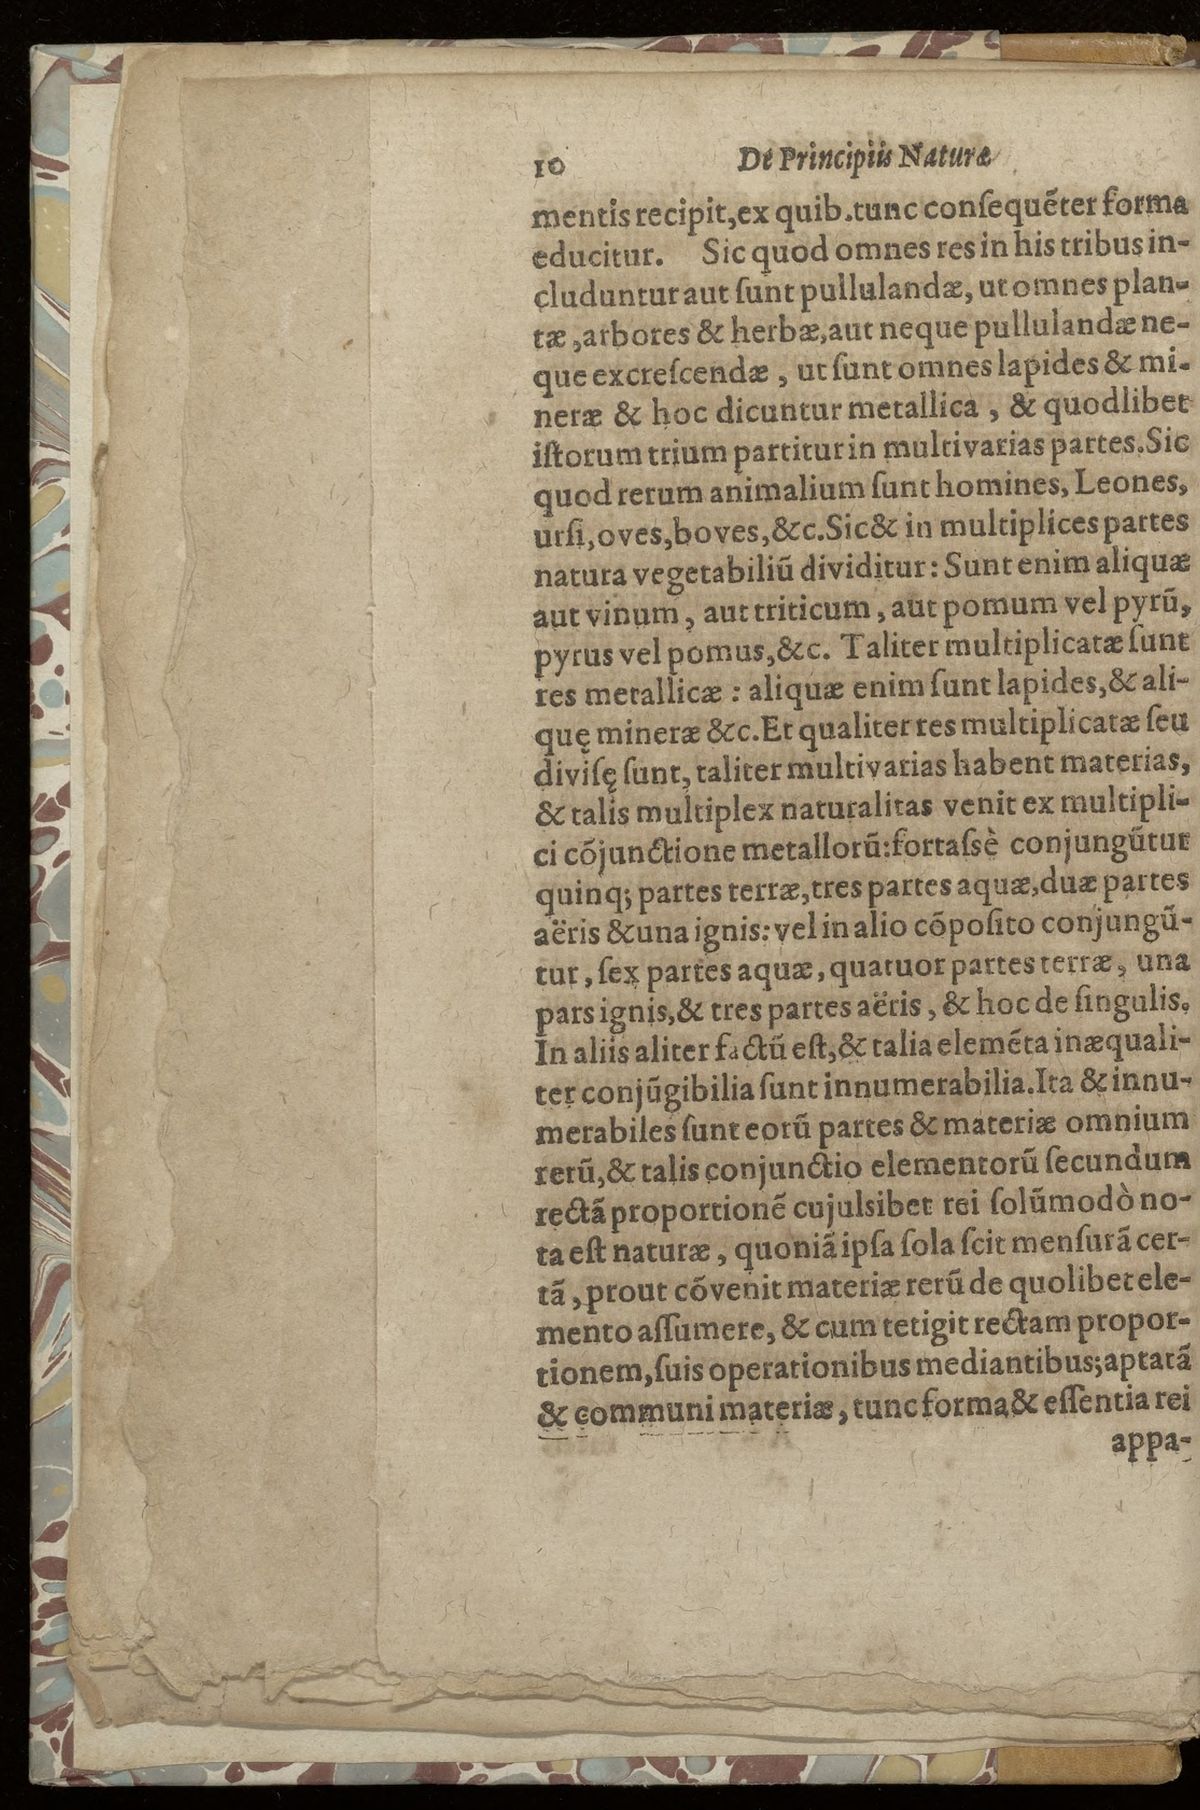 10 De Principiis Naturæ
mentis recipit, ex quib. tunc conſequẽter forma
educitur. Sic quod omnes res in his tribus in-
cluduntur aut ſunt pullulandæ, ut omnes plan-
tæ, arbores & herbæ, aut neque pullulandæ ne-
que excreſcendæ, ut ſunt omnes lapides & mi-
neræ & hoc dicuntur metallica, & quodlibet
iſtorum trium partitur in multivarias partes. Sic
quod rerum animalium ſunt homines, Leones,
urſi, oves, boves, &c. Sic & in multiplices partes
natura vegetabiliũ dividitur: Sunt enim aliquæ
aut vinum, aut triticum, aut pomum vel pyrũ,
pyrus vel pomus, &c. Taliter multiplicatæ ſunt
res metallicæ: aliquæ enim ſunt lapides, & ali-
quę mineræ &c. Et qualiter res multiplicatæ ſeu
diviſę ſunt, taliter multivarias habent materias,
& talis multiplex naturalitas venit ex multipli-
ci cõjunctione metallorũ: fortaſsè conjungũtur
quinq; partes terræ, tres partes aquæ, duæ partes
aëris & una ignis: vel in alio cõpoſito conjungũ-
tur, ſex partes aquæ, quatuor partes terræ, una
pars ignis, & tres partes aëris, & hoc de ſingulis.
In aliis aliter factũ eſt, & talia elemẽta inæquali-
ter conjũgibilia ſunt innumerabilia. Ita & innu-
merabiles ſunt eorũ partes & materiæ omnium
rerũ, & talis conjunctio elementorũ ſecundum
rectã proportionẽ cujulsibet rei ſolũmodò no-
ta eſt naturæ, quoniã ipſa ſola ſcit menſurã cer-
tã, prout cõvenit materiæ rerũ de quolibet ele-
mento aſſumere, & cum tetigit rectam propor-
tionem, ſuis operationibus mediantibus; aptatã
& communi materiæ, tunc forma & eſſentia rei
appa-